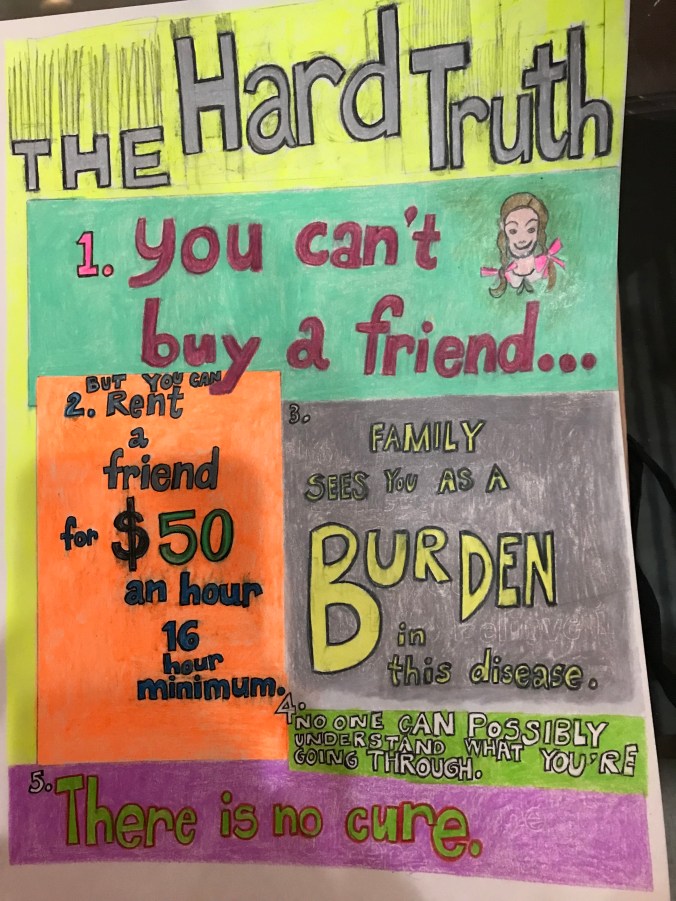 THE Hard Truth
1. you can't
buy a friend...
BUT YOU CAN
2. Rent
a
friend
for $50
an hour
16
hour
minimum.
3.
FAMILY
SEES YOU AS A
BURDEN
in
this disease.
4.
NO ONE CAN POSSIBLY
UNDERSTAND WHAT YOU'RE
GOING THROUGH.
5. There is no cure.